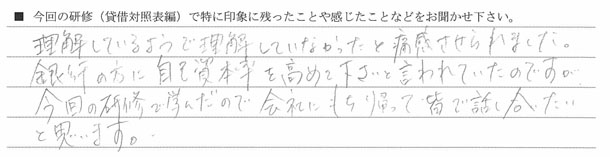 ■ 今回の研修（貸借対照表編）で特に印象に残ったことや感じたことなどをお聞かせ下さい。
理解しているようで理解していなかったと痛感させられました。
銀行の方に自己資本率を高めて下さいと言われていたのですが、
今回の研修で学んだので会社にもち帰って皆で話し合いたい
と思います。